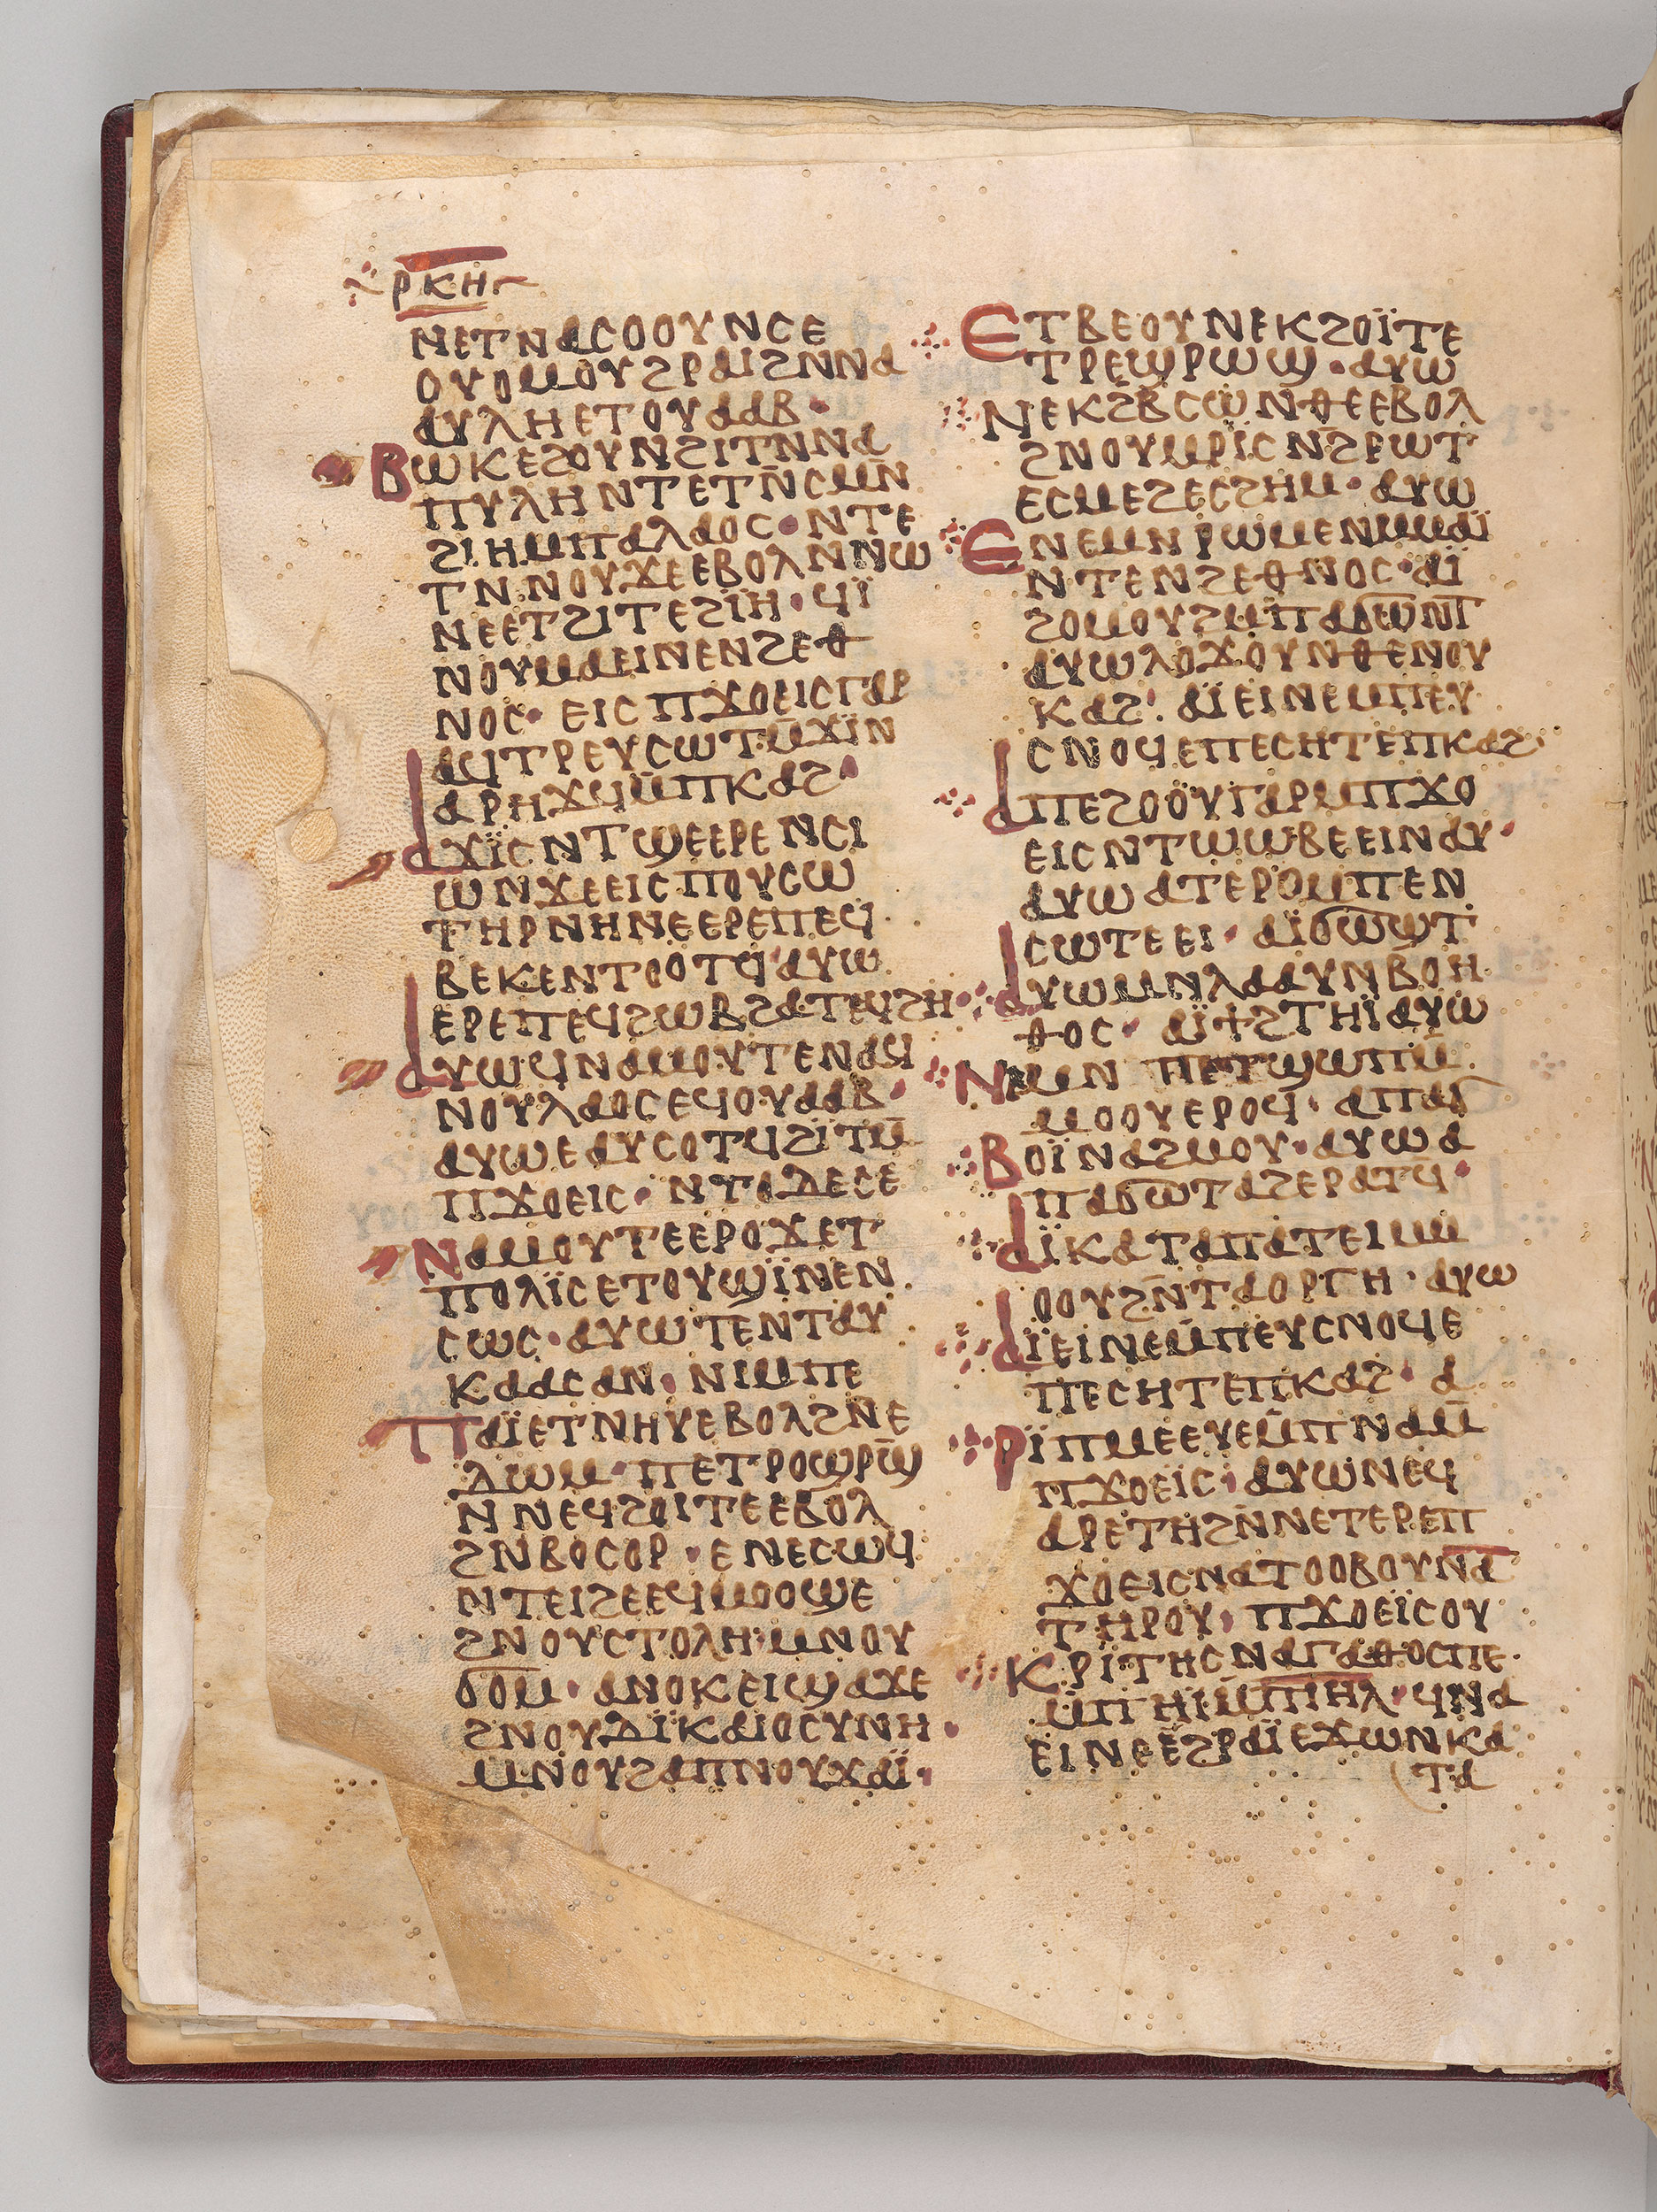 ⲣⲕⲏ
ⲛⲉⲧⲛⲁⲥⲟⲟⲩⲛⲥⲉ
ⲟⲩⲟⲙⲟⲩϩⲣⲁⲓϩⲛⲛⲁ
ⲁⲩⲗⲏⲉⲧⲟⲩⲁⲁⲃ·
ⲃⲱⲕⲉϩⲟⲩⲛϩⲓⲧⲛⲛⲁ
ⲡⲩⲗⲏⲛⲧⲉⲧⲛ̄ⲥⲙⲛ̄
ϩⲓⲏⲙⲡⲁⲗⲁⲟⲥ·ⲛⲧⲉ
ⲧⲛⲛⲟⲩϫⲉⲉⲃⲟⲗⲛⲛⲱ
ⲛⲉⲉⲧϩⲓⲧⲉϩⲓ̈ⲏ·ϥⲓ̈
ⲛⲟⲩⲙⲁⲉⲓⲛⲉⲛϩⲉⲑ
ⲛⲟⲥ· ⲉⲓⲥⲡϫⲟⲉⲓⲥⲅⲁⲣ
ⲁϥⲧⲣⲉⲩⲥⲱⲧⲙ̄ϫⲓ̈ⲛ
ⲁⲣⲏϫϥⲙ̄ⲡⲕⲁϩ·
ⲁϫⲓ̈ⲥⲛⲧϣⲉⲉⲣⲉⲛⲥⲓ
ⲱⲛϫⲉⲉⲓⲥⲡⲟⲩⲥⲱ
ⲧⲏⲣⲛⲏⲛⲉⲉⲣⲉⲡⲉϥ
ⲃⲉⲕⲉⲛⲧⲟⲟⲧϥⲁⲩⲱ
ⲉⲣⲉⲡⲉϥϩⲱⲃϩⲁⲧⲉϥϩⲏ
ⲁⲩⲱϥⲛⲁⲙⲟⲩⲧⲉⲛⲁϥ
ⲛⲟⲩⲗⲁⲟⲥⲉϥⲟⲩⲁⲁⲃ·
ⲁⲩⲱⲉⲁⲩⲥⲟⲧϥϩⲓⲧⲙ̄
ⲡϫⲟⲉⲓⲥ· ⲛⲧⲟⲇⲉⲥⲉ
ⲛⲁⲙⲟⲩⲧⲉⲉⲣⲟϫⲉⲧ
ⲡⲟⲗⲓ̈ⲥⲉⲧⲟⲩϣⲓ̈ⲛⲉⲛ
ⲥⲱⲥ·ⲁⲩⲱⲧⲉⲛⲧⲁⲩ
ⲕⲁⲁⲥⲁⲛ· ⲛⲓⲙⲡⲉ
ⲡⲁⲓ̈ⲉⲧⲛⲏⲩⲉⲃⲟⲗϩⲛⲉ
ⲇⲱⲙ·ⲡⲉⲧⲣⲟϣⲣϣ̄
ⲛⲛⲉϥϩⲟⲓⲧⲉⲉⲃⲟⲗ
ϩⲛⲃⲟⲥⲟⲣ·ⲉⲛⲉⲥⲱϥ
ⲛⲧⲉⲓϩⲉⲉϥⲙⲟⲟϣⲉ
ϩⲛⲟⲩⲥⲧⲟⲗⲏ·ⲙⲛⲟⲩ
ϭⲟⲙ·ⲁⲛⲟⲕⲉⲓϣⲁϫⲉ
ϩⲛⲟⲩⲇⲓ̈ⲕⲁⲓⲟⲥⲩⲛⲏ·
ⲙⲛⲟⲩϩⲁⲡⲛⲟⲩϫⲁⲓ̈·
ⲉⲧⲃⲉⲟⲩⲛⲉⲕϩⲟⲓ̈ⲧⲉ
ⲧⲣⲉϣⲣⲱϣ·ⲁⲩⲱ
ⲛⲉⲕϩⲃ̄ⲥⲱⲛ̄ⲑⲉⲉⲃⲟⲗ
ϩⲛⲟⲩⲙⲣⲓ̈ⲥⲛϩⲣⲱⲧ
ⲉⲥⲙⲉϩⲉⲥϩⲏⲙ·ⲁⲩⲱ
ⲉⲛⲉⲙⲛⲣⲱⲙⲉⲛⲙⲙⲁⲓ̈
ⲛⲧⲉⲛϩⲉⲑⲛⲟⲥ·ⲁⲓ̈
ϩⲟⲙⲟⲩϩⲙⲡⲁϭⲱⲛⲧ
ⲁⲩⲱⲗⲟϫⲟⲩⲛⲑⲉⲛⲟⲩ
ⲕⲁϩ· ⲁⲓ̈ⲉⲓⲛⲉⲙⲡⲉⲩ
ⲥⲛⲟϥⲉⲡⲉⲥⲏⲧⲉⲡⲕⲁϩ
ⲁⲡⲉϩⲟⲟⲩⲅⲁⲣⲙⲡϫⲟ
ⲉⲓⲥⲛⲧⲱⲱⲃⲉⲉⲓⲛⲁⲩ·
ⲁⲩⲱⲁⲧⲉⲣⲟⲙⲡⲉⲛ
ⲥⲱⲧⲉⲉⲓ· ⲁⲓ̈ϭⲱϣⲧ
ⲁⲩⲱⲙⲛⲗⲁⲁⲩⲛⲃⲟⲏ
ⲑⲟⲥ· ⲁⲓ̈ϯϩⲧⲏⲓ̈ⲁⲩⲱ
ⲛⲙⲛ ⲡⲉⲧϣⲱⲡⲙ̄
ⲙⲟⲟⲩⲉⲣⲟϥ· ⲁⲡⲁϭ
ⲃⲟⲓ̈ⲛⲁϩⲙⲟⲩ·ⲁⲩⲱⲁ
ⲡⲁϭⲱⲧⲁϩⲉⲣⲁⲧϥ·
ⲁⲓ̈ⲕⲁⲧⲁⲡⲁⲧⲉⲓⲙⲙ
ⲟⲟⲩϩⲛ̄ⲧⲁⲟⲣⲅⲏ·ⲁⲩⲱ
ⲁⲓ̈ⲉⲓⲛⲉⲙ̄ⲡⲉⲩⲥⲛⲟϥⲉ
ⲡⲉⲥⲏⲧⲉⲡⲕⲁϩ· ⲁ
ⲣⲓ̈ⲡⲙⲉⲉⲩⲉⲙ̄ⲡⲛⲁⲙ̄
ⲡϫⲟⲉⲓ̈ⲥ·ⲁⲩⲱⲛⲉϥ
ⲁⲣⲉⲧⲏϩⲛ̄ⲛⲉⲧⲉⲣⲉⲡ
ϫⲟⲉⲓⲥⲛⲁⲧⲟⲟⲃⲟⲩⲛⲁ
ⲧⲏⲣⲟⲩ· ⲡϫⲟⲉⲓ̈ⲥⲟⲩ
ⲕⲣⲓⲧⲏⲥⲛⲁⲅⲁⲑⲟⲥⲡⲉ
ⲙ̄ⲡⲏⲓⲙ̄ⲡⲓⲏⲗ·ϥⲛⲁ
ⲉⲓⲛⲉⲉϩⲣⲁⲓ̈ⲉϫⲱⲛⲕⲁ
ⲧⲁ